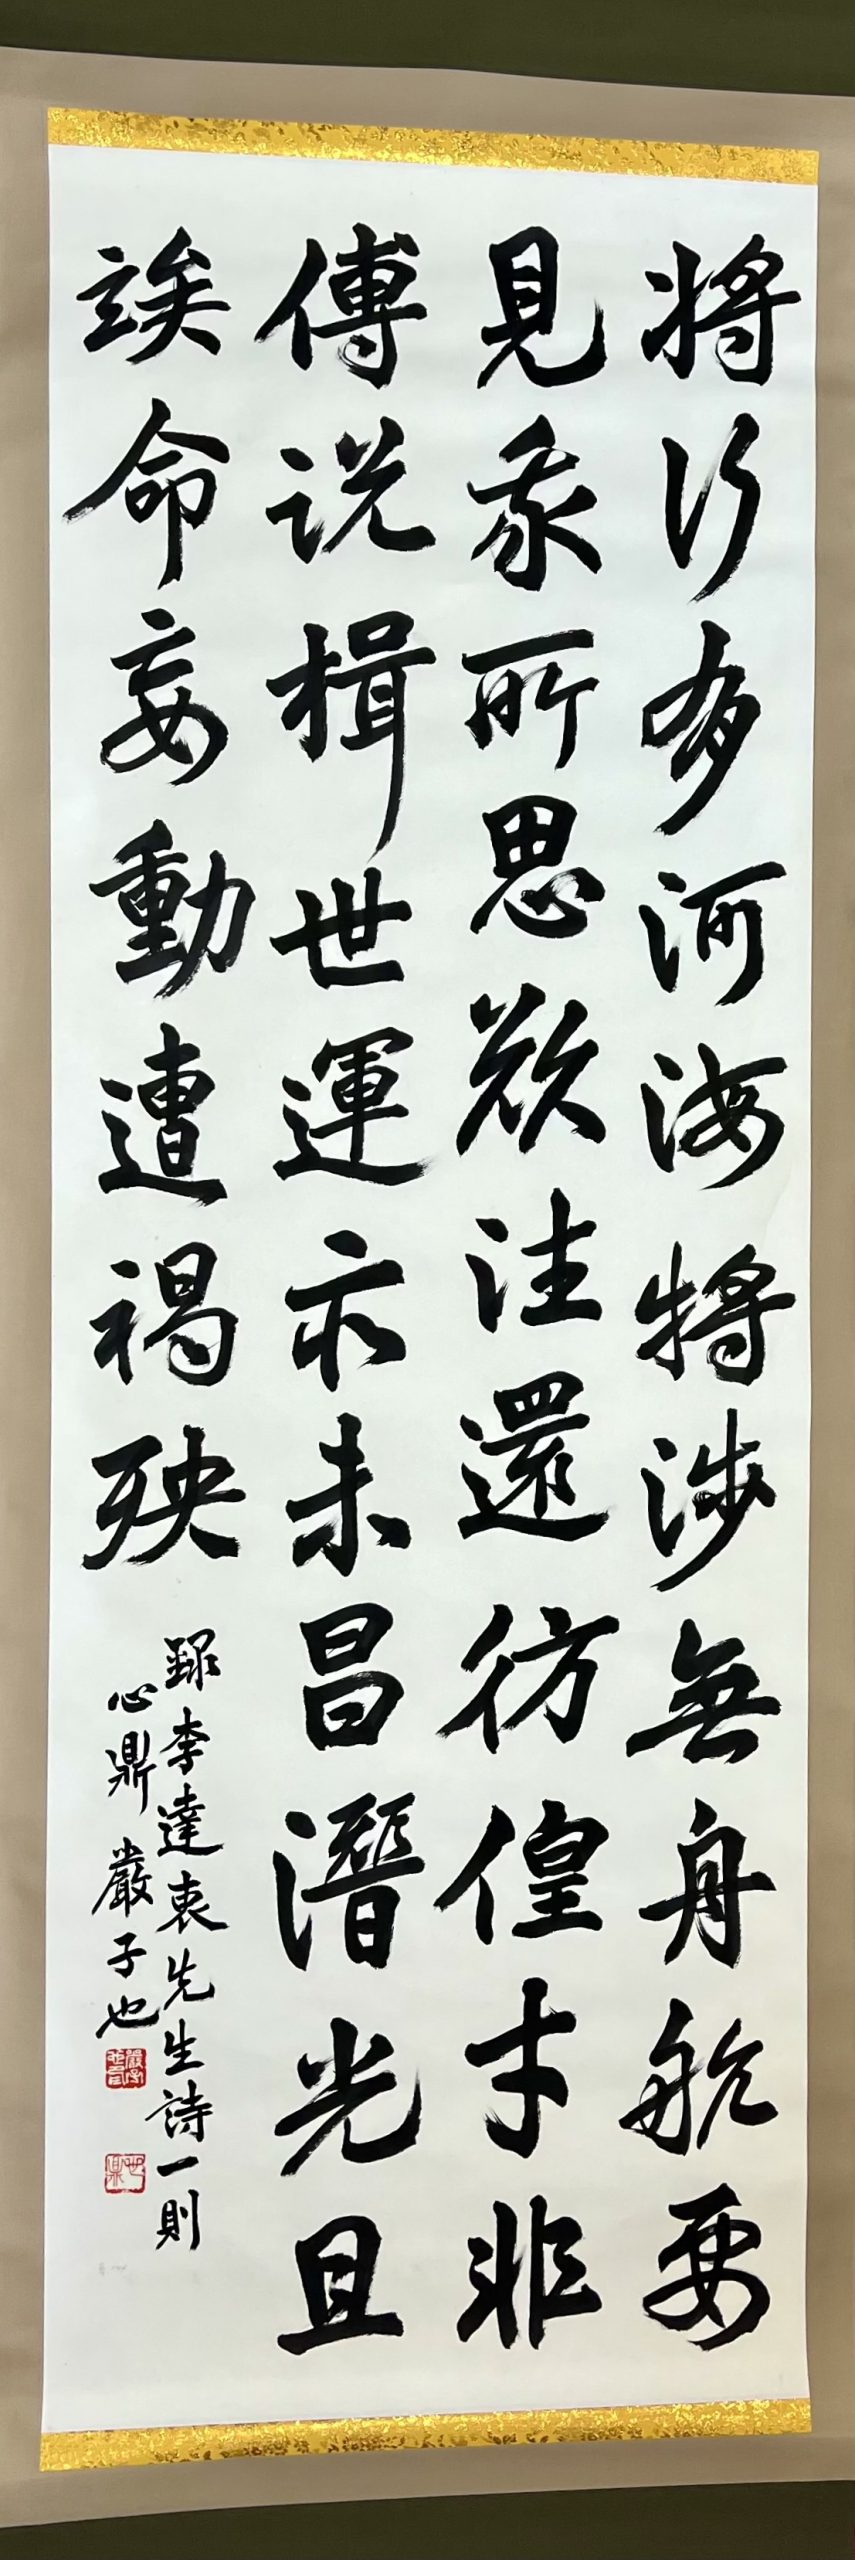 將行有河海將涉無舟航要
見我所思欲往還彷偟才非
傅說楫世運亦未昌潛光且
竢命妄動遭禍殃
錄李達衷先生詩一則
心鼎 嚴子也